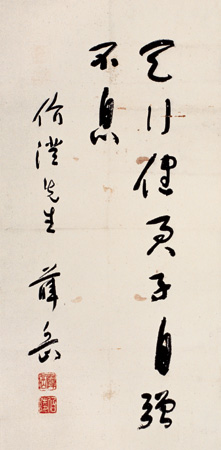 天行健君子自强
不息
伯澄先生
薛岳